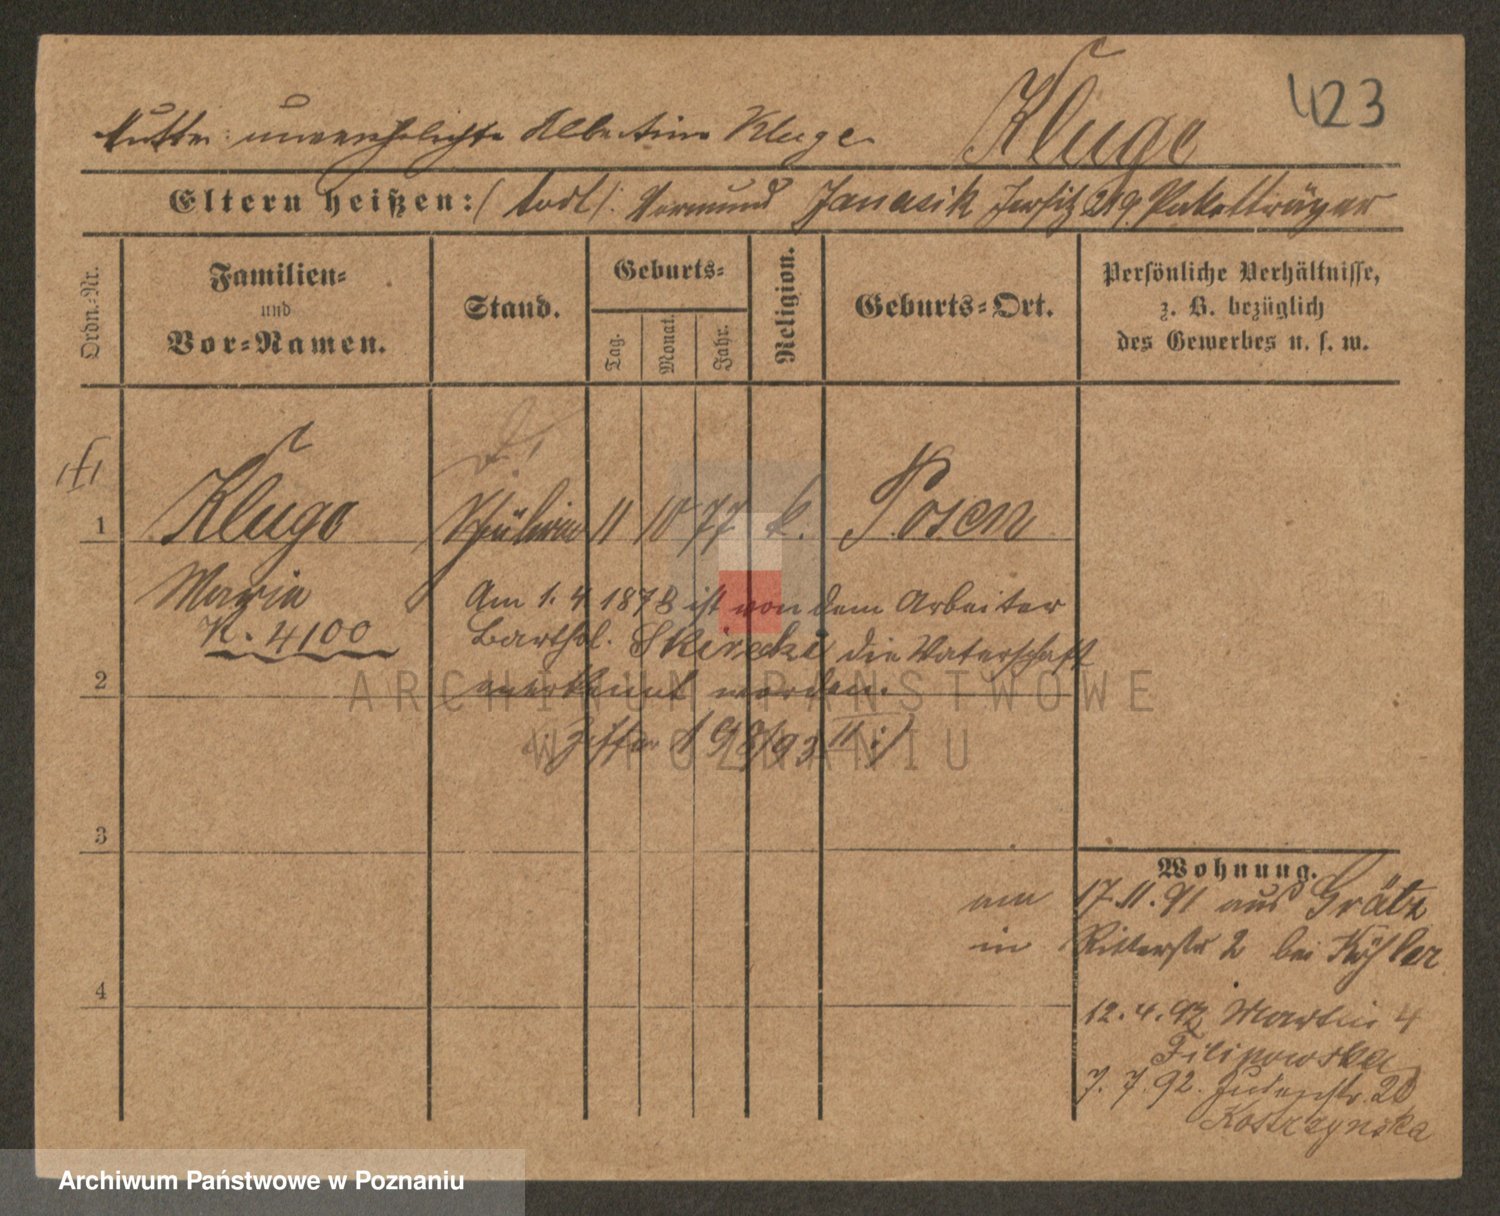 423
Kluge
Mutter: unverehelichte Albertine Kluge.
Eltern heißen: (todt). Vormund Janasik Jersitz 219. Paketträger
Ordn.-Nr.
Familien-
und
Vor-Namen.
Stand.
Geburts-
Tag.
Monat.
Jahr.
Religion.
Geburts-Ort.
Persönliche Verhältnisse,
z. B. bezüglich
des Gewerbes u. s. w.
1 Kluge Schülerin 11 10 77 k. Posen
Maria
K. 4100
Am 1. 4 1878 ist von dem Arbeiter
Barthol. Skirecki die Vaterschaft
2
anerkannt worden.
198/93 II
3
Wohnung.
am 17.11.91 aus Grätz
in Ritterstr 2 bei Köhler
4
12.4.92 Martin 4
Filipowska
7.7.92. Judenstr. 20
Kostrzynska
ARCHIWUM PAŃSTWOWE
W POZNANIU
Archiwum Państwowe w Poznaniu